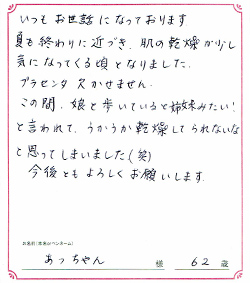 いつもお世話になっております
夏も終わりに近づき、肌の乾燥が少し
気になってくる頃となりました。
プラセンタ欠かせません。
この間、娘と歩いていると姉妹みたい!
と言われて、うかうか乾燥してられないな
と思ってしまいました(笑)
今後ともよろしくお願いします。
お名前(本名orペンネーム)
あっちゃん 様 62歳